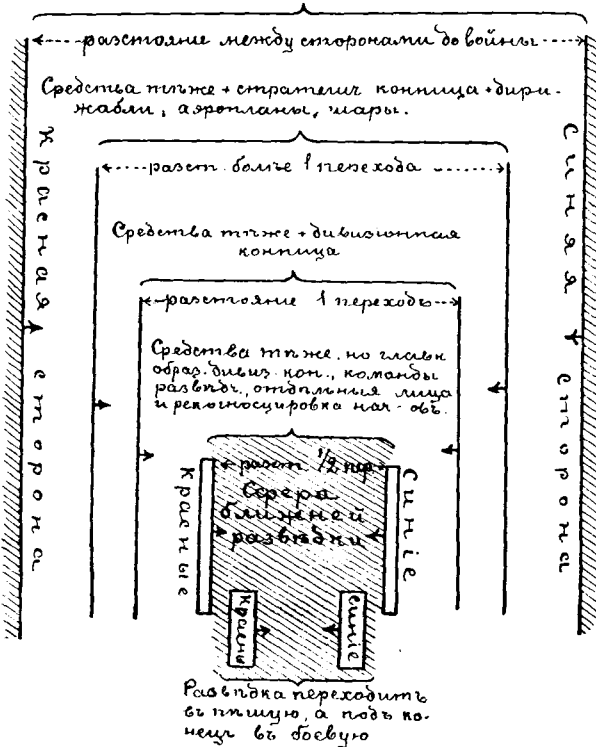 разстояние между сторонами до войны
Средства тѣже + стратегич конница + дири-
жабли, аэропланы, шары.
Красная сторона
Синяя сторона
разст. болѣе 1 перехода
Средства тѣже + дивизионная
конница
разстояние 1 переходъ
Средства тѣже, но главн
образ. дивиз. кон., команды
развѣдч., отдѣльныя лица
и рекогносцировка нач-овъ.
разст 1/2 пер
Красные
Синіе
Сфера
ближней
развѣдки
Красны
Синіе
Развѣдка переходитъ
въ пѣшую, а подъ ко-
нецъ въ боевую